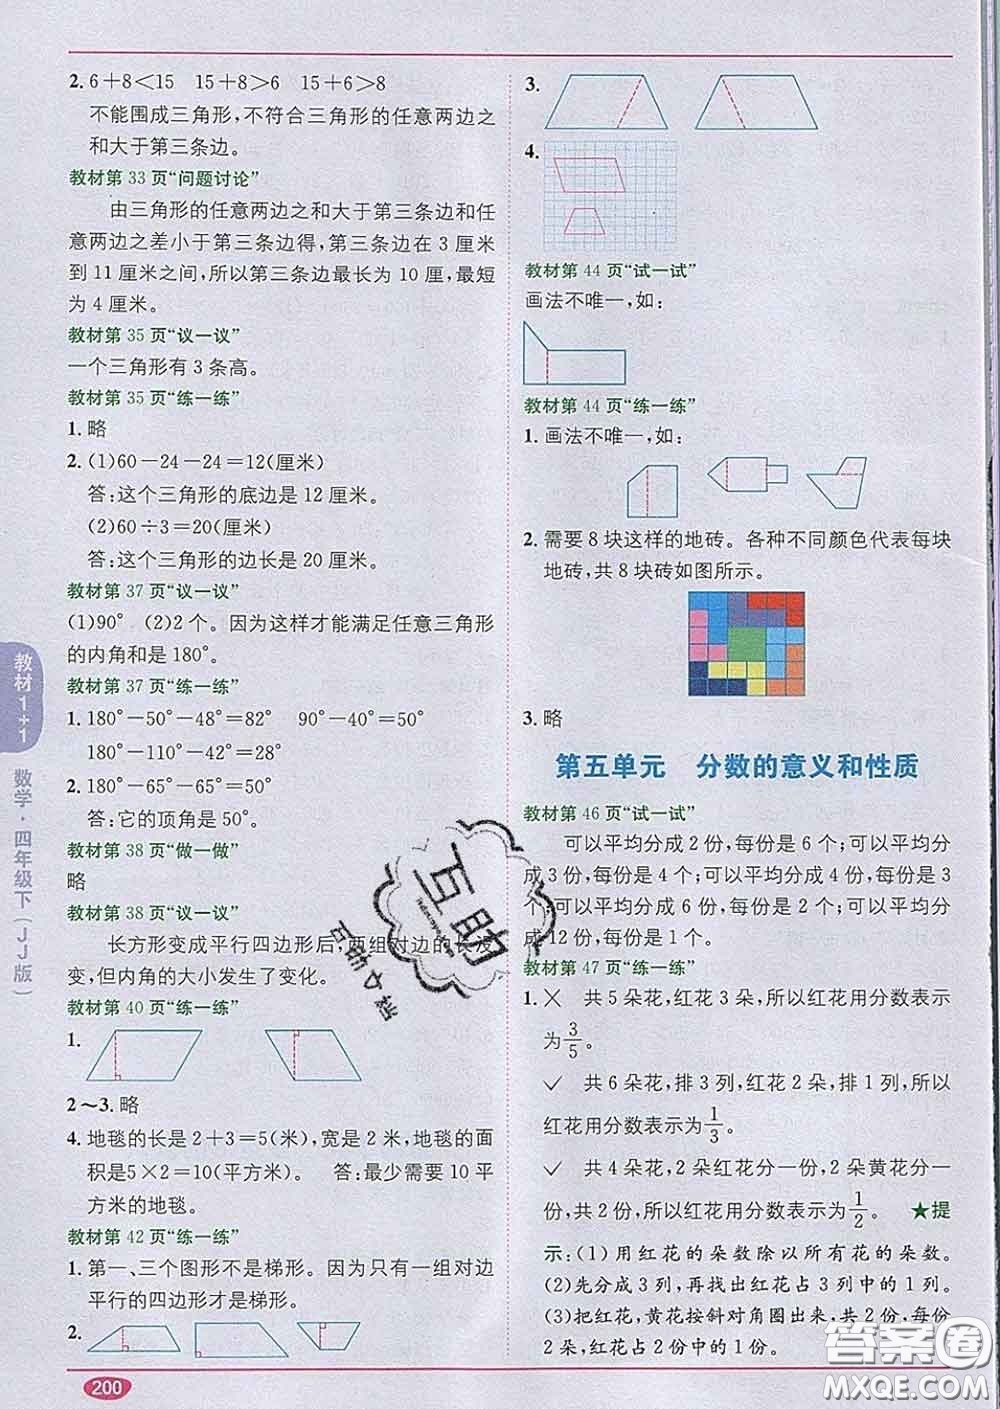 2. 6+8<15 15+8>6 15+6>8
不能围成三角形,不符合三角形的任意两边之
和大于第三条边。
教材第 33 页“问题讨论”
由三角形的任意两边之和大于第三条边和任
意两边之差小于第三条边得,第三条边在 3 厘米
到 11 厘米之间,所以第三条边最长为 10 厘,最短
为 4 厘米。
教材第 35 页“议一议”
一个三角形有 3 条高。
教材第 35 页“练一练”
1. 略
2. (1)60-24-24=12(厘米)
答:这个三角形的底边是 12 厘米。
(2)60÷3=20(厘米)
答:这个三角形的边长是 20 厘米。
教材第 37 页“议一议”
(1)90° (2)2 个。因为这样才能满足任意三角形
的内角和是 180°。
教材第 37 页“练一练”
1. 180°-50°-48°=82° 90°-40°=50°
180°-110°-42°=28°
2. 180°-65°-65°=50°
答:它的顶角是 50°。
教材第 38 页“做一做”
略
教材第 38 页“议一议”
长方形变成平行四边形后,两组对边的长没
变,但内角的大小发生了变化。
教材第 40 页“练一练”
1.
2~3. 略
4. 地毯的长是 2+3=5(米),宽是 2 米,地毯的面
积是5×2=10(平方米) 答:最少需要 10 平
方米的地毯。
教材第 42 页“练一练”
1. 第一、三个图形不是梯形。因为只有一组对边
平行的四边形才是梯形。
2.
3.
4.
教材第 44 页“试一试”
画法不唯一,如:
教材第 44 页“练一练”
1. 画法不唯一,如:
2. 需要 8 块这样的地砖。各种不同颜色代表每块
地砖,共 8 块砖如图所示。
3. 略
第五单元 分数的意义和性质
教材第 46 页“试一试”
可以平均分成 2 份,每份是 6 个;可以平均分
成 3 份,每份是 4 个;可以平均分成 4 份,每份是 3
个;可以平均分成 6 份,每份是 2 个;可以平均分
成 12 份,每份是 1 个。
教材第 47 页“练一练”
1. × 共 5 朵花,红花 3 朵,所以红花用分数表示
为3/5。
✓ 共 6 朵花,排 3 列,红花 2 朵,排 1 列,所以
红花用分数表示为1/3。
✓ 共 4 朵花,2 朵红花分一份,2 朵黄花分一
份,共 2 份,所以红花用分数表示为1/2。 ★提
示:(1) 用红花的朵数除以所有花的朵数。
(2)先分成 3 列,再找出红花占 3 列中的 1 列。
(3)把红花,黄花按斜对角圈出来,共 2 份,每份
2 朵,红花占 2 份中的 1 份。
教材 1+1
数学·四年级下(JJ版)
200
互助
答案圈
MXQE.COM